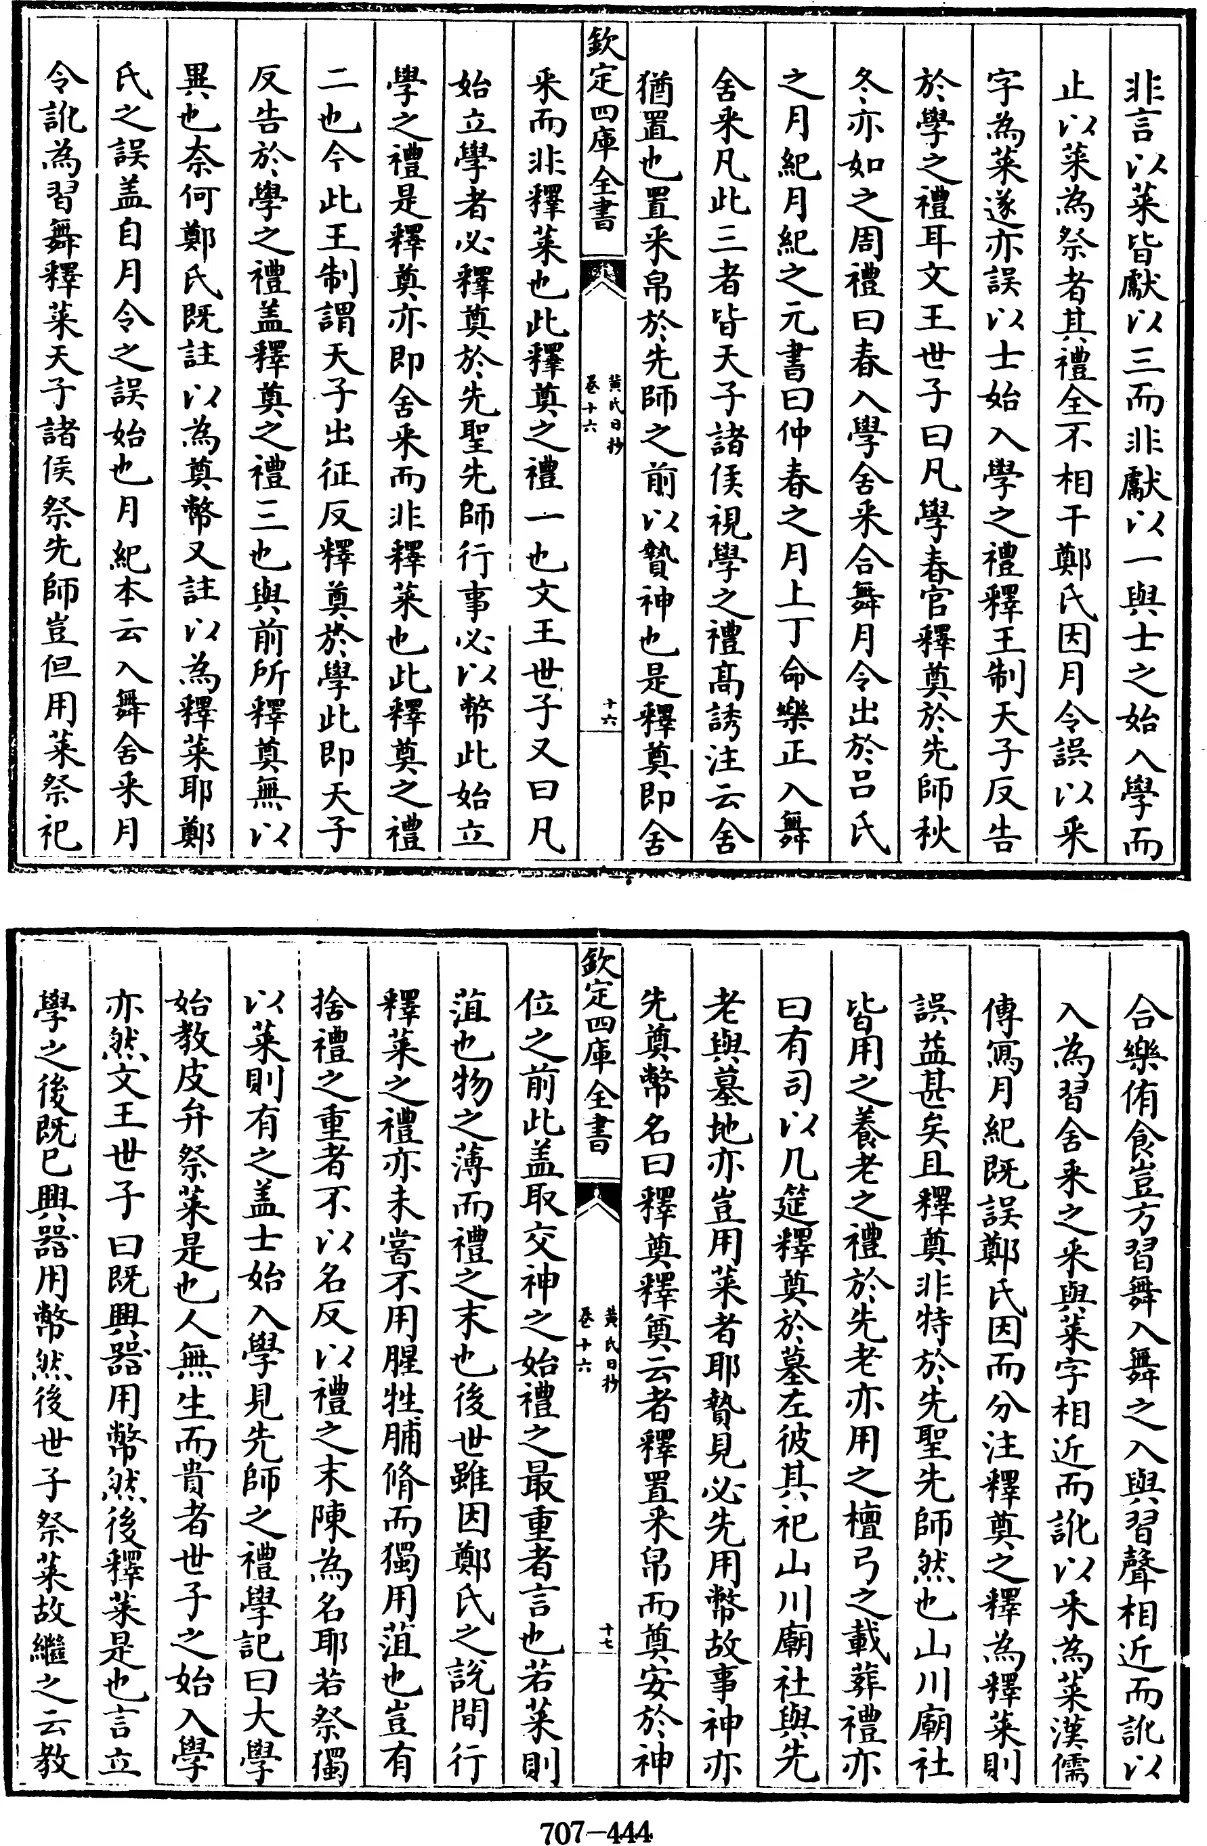 非言以菜皆獻以三而非獻以一與士之始入學而
止以菜為祭者其禮全不相干鄭氏因月令誤以釆
字為菜遂亦誤以士始入學之禮釋王制天子反告
於學之禮耳文王世子曰凡學春官釋奠於先師秋
冬亦如之周禮曰春入學舍釆合舞月令出於吕氏
之月紀月紀之元書曰仲春之月上丁命樂正入舞
舍釆凡此三者皆天子諸侯視學之禮高誘注云舍
猶置也置釆帛於先師之前以贄神也是釋奠即舍
欽定四庫全書
黄氏日抄
卷十六
十六
釆而非釋菜也此釋奠之禮一也文王世子又曰凡
始立學者必釋奠於先聖先師行事必以幣此始立
學之禮是釋奠亦即舍釆而非釋菜也此釋奠之禮
二也今此王制謂天子出征反釋奠於學此即天子
反告於學之禮盖釋奠之禮三也與前所釋奠無以
異也奈何鄭氏既註以為奠幣又註以為釋菜耶鄭
氏之誤盖自月令之誤始也月紀本云入舞舍釆月
令訛為習舞釋菜天子諸侯祭先師豈但用菜祭祀
合樂侑食豈方習舞入舞之入與習聲相近而訛以
入為習舍釆之釆與菜字相近而訛以釆為菜漢儒
傳寫月紀既誤鄭氏因而分注釋奠之釋為釋菜則
誤益甚矣且釋奠非特於先聖先師然也山川廟社
皆用之養老之禮於先老亦用之檀弓之載葬禮亦
曰有司以几筵釋奠於墓左彼其祀山川廟社與先
老與墓地亦豈用菜者耶贄見必先用幣故事神亦
先奠幣名曰釋奠釋奠云者釋置釆帛而奠安於神
欽定四庫全書
黄氏日抄
卷十六
十七
位之前此盖取交神之始禮之最重者言也若菜則
菹也物之薄而禮之末也後世雖因鄭氏之說間行
釋菜之禮亦未嘗不用腥牲脯脩而獨用菹也豈有
捨禮之重者不以名反以禮之末陳為名耶若祭獨
以菜則有之盖士始入學見先師之禮學記曰大學
始教皮弁祭菜是也人無生而貴者世子之始入學
亦然文王世子曰既興器用幣然後釋菜是也言立
學之後既已興器用幣然後世子祭菜故繼之云教
707-444